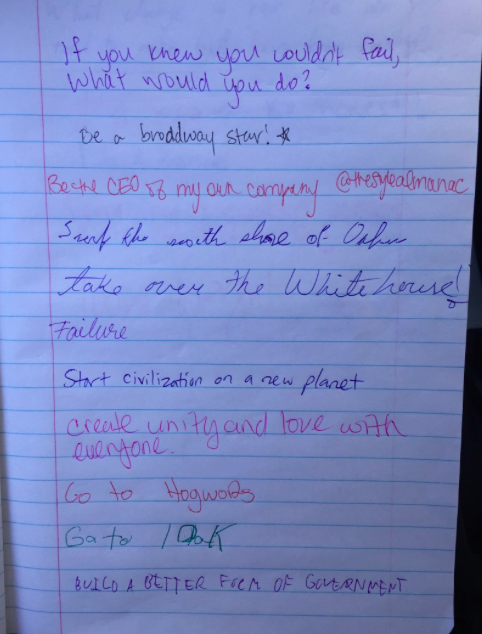 If you knew you couldn't fail,
What would you do?
Be a broddway star!
Be the CEO of my own company @thestylealmanac
Surf the north shore of Oahu
take over the White house!
Failure
Start civilization on a new planet
create unity and love with
everyone.
Go to Hogwords
Go to
BUILD A BETTER FORM OF GOVERNMENT